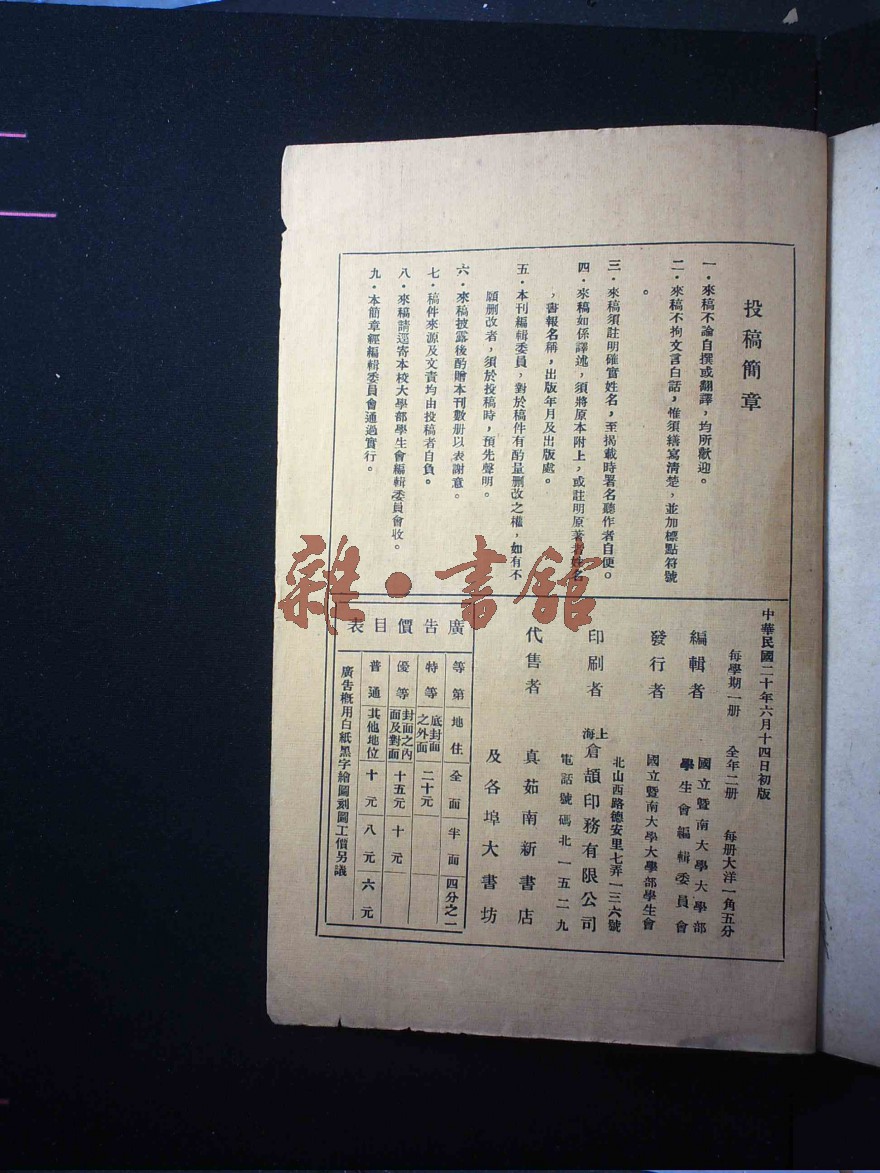 投稿簡章
一．來稿不論自撰或翻譯，均所歡迎。
二．來稿不拘文言白話，惟須繕寫清楚，並加標點符號
。
三．來稿須註明確實姓名，至揭載時署名聽作者自便。
四．來稿如係譯述，須將原本附上，或註明原著者姓名
，書報名稱，出版年月及出版處。
五．本刊編輯委員，對於稿件有酌量删改之權，如有不
願删改者，須於投稿時，預先聲明。
六．來稿披露後酌贈本刊數册以表謝意。
七．稿件來源及文責均由投稿者自負。
八．來稿請逕寄本校大學部學生會編輯委員會收。
九．本簡章經編輯委員會通過實行。
中華民國二十年六月十四日初版
每學期一册　全年二册　每册大洋一角五分
編輯者　國立暨南大學大學部
學生會編輯委員會
發行者　國立暨南大學大學部學生會
北山西路德安里七弄一三六號
印刷者　上海倉頡印務有限公司
電話號碼北一五二九
代售者　真茹南新書店
及各埠大書坊
廣告價目表
等第　地住　全面　半面　四分之一
特等　底封面之外面　二十元
優等　封面之內面及對面　十五元　十元
普通　其他地位　十元　八元　六元
廣告概用白紙黑字繪圖刻圖工價另議
雜·書館